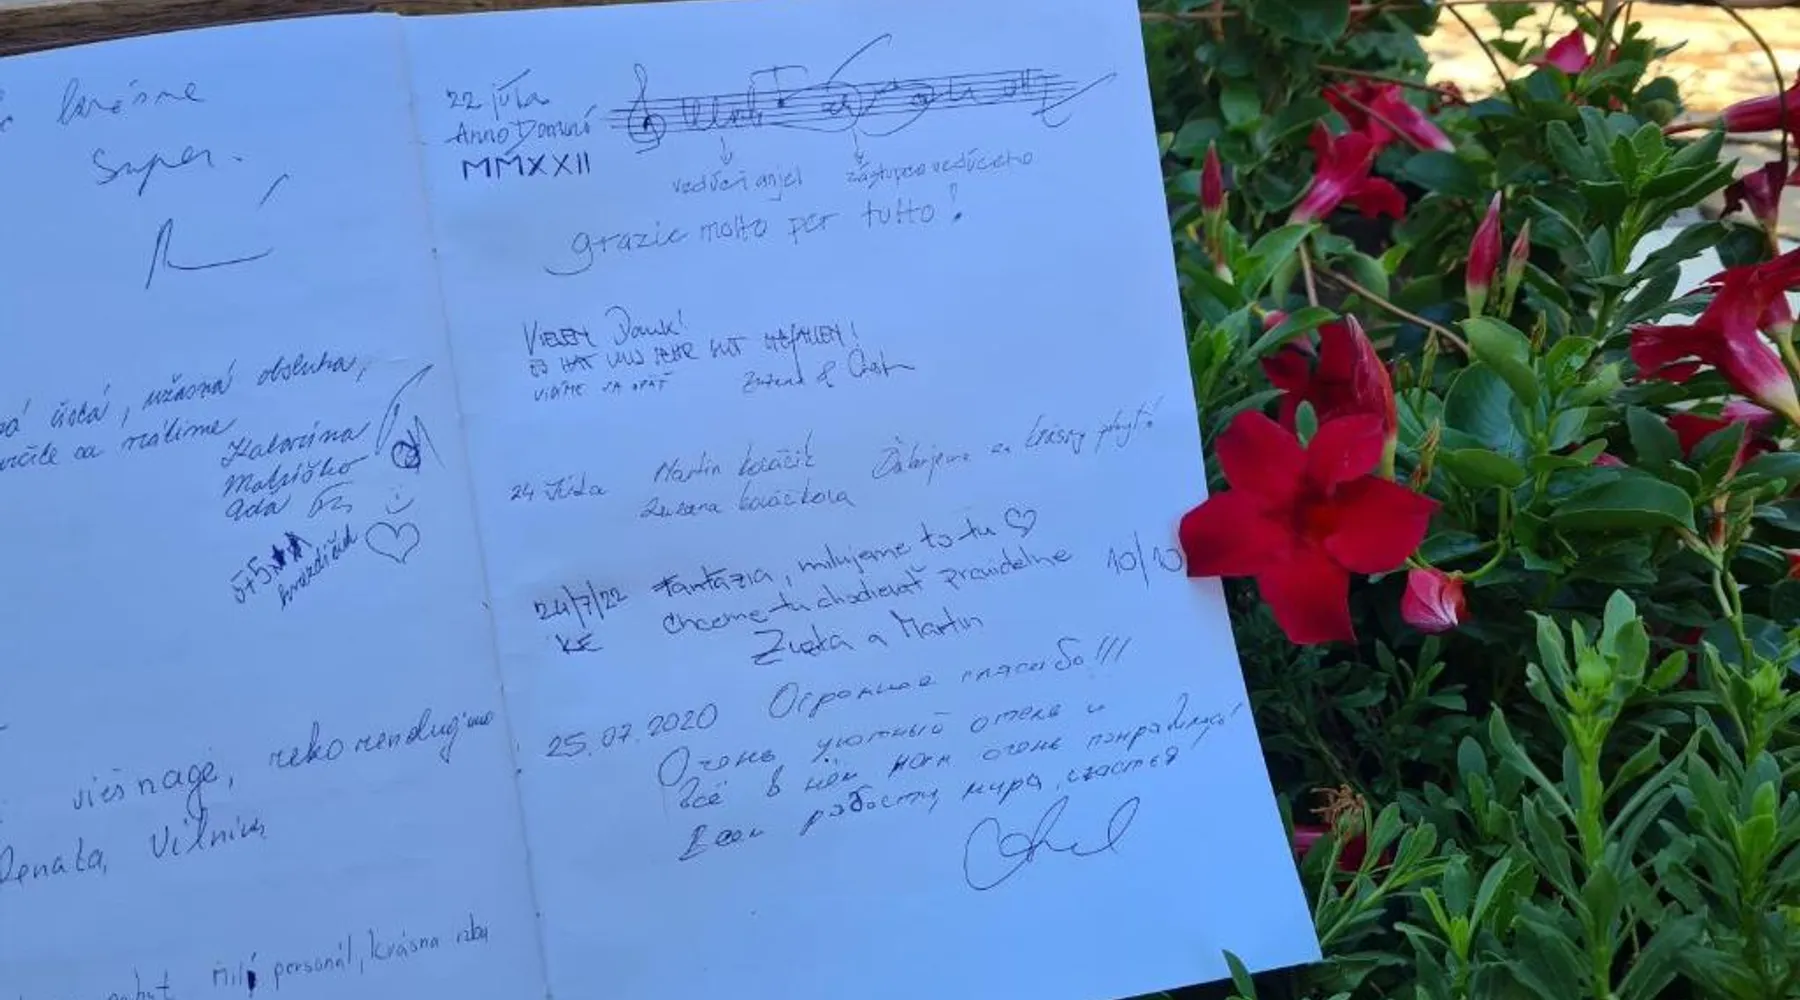 krásne
Super.
čistá, úžasná obsluha,
sa vrátime
Katarína
Matúško
Ada
5+5
hviezdičiek
viešnagė, rekomenduojame
Renata, Vilnius
milý personál, krásna izba
22 júla
Anno Domini
MMXXII
vedúci anjel zástupca vedúceho
grazie molto per tutto!
VIELEN Dank!
ES HAT UNS SEHR GUT GEFALLEN!
VIDÍME SA OPÄŤ Zuzana &
24 Júla Martin Kováčik Ďakujeme za krásny pobyt!
Zuzana Kováčikova
24/7/22 Fantázia, milujeme to tu ♡
KE chceme tu chodievať pravidelne 10/10
Zuzka a Martin
25.07.2020 Огромное спасибо!!!
Очень уютный отель и
всё в нём нам очень понравилось!
Всем радости, мира, счастья